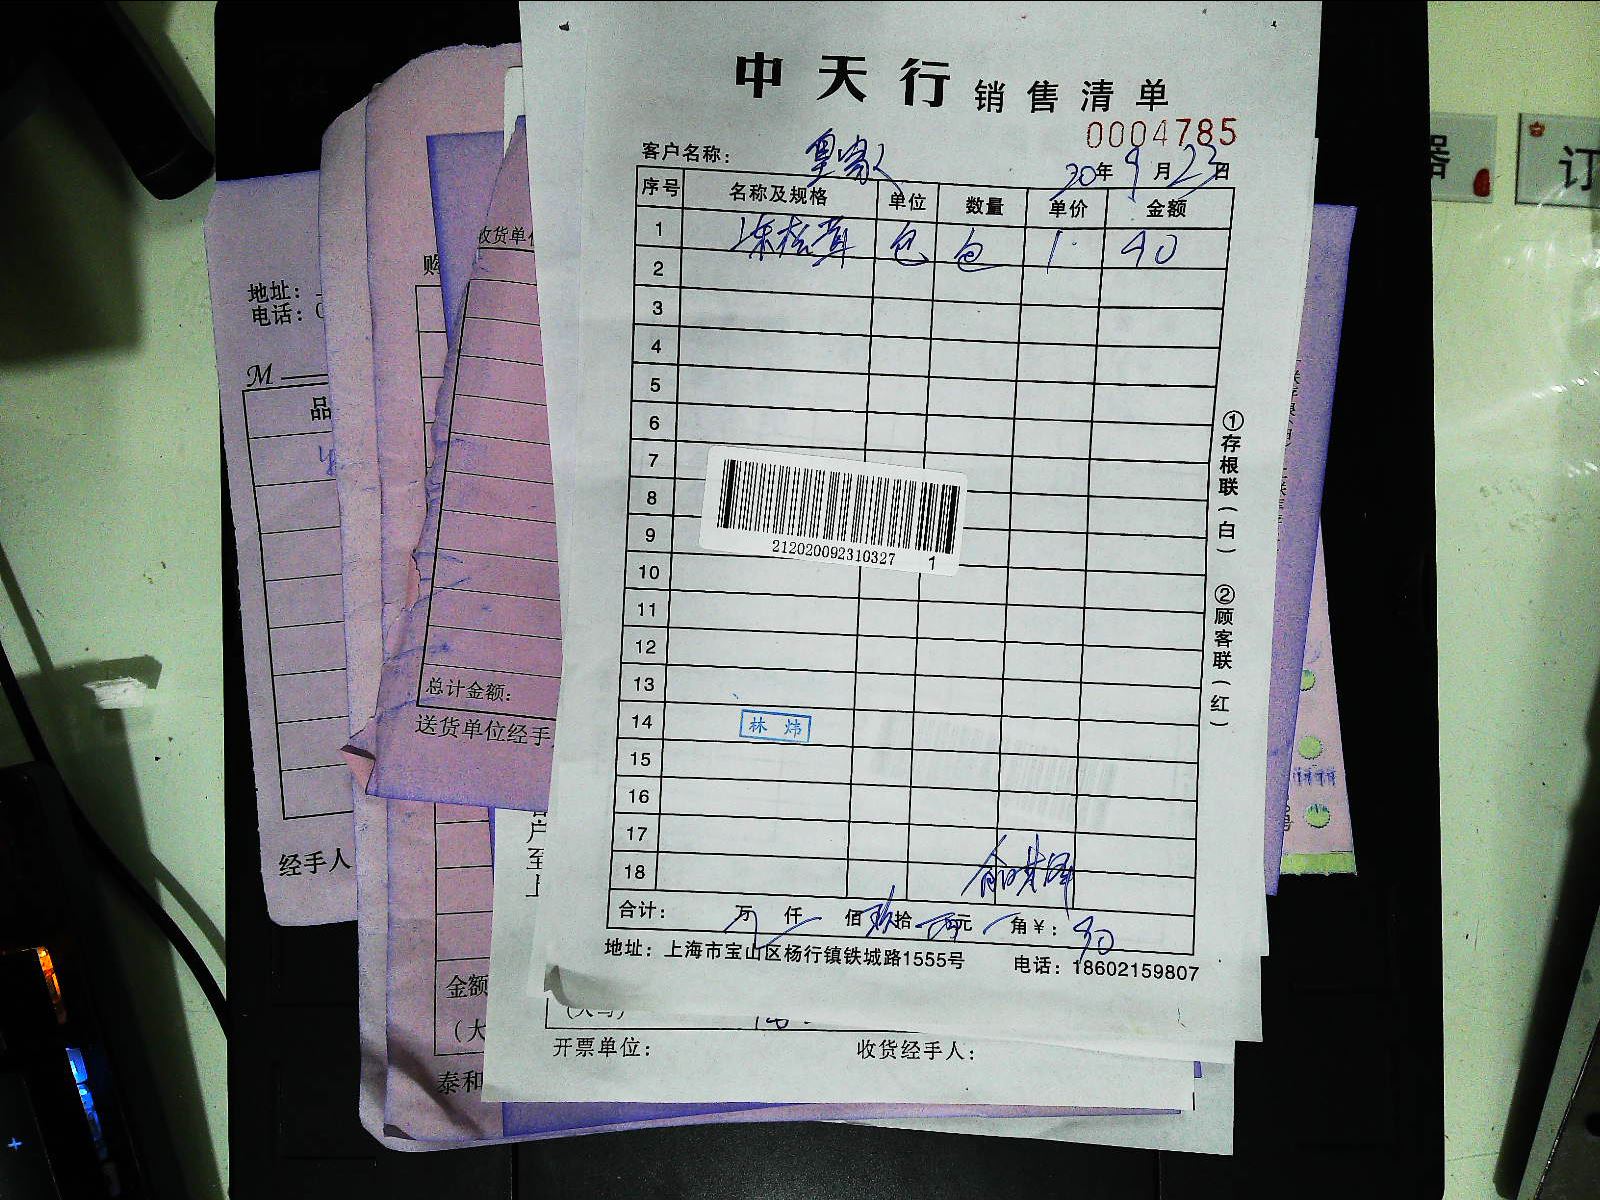 中天行 销售清单
0004785
客户名称: 皇家
20年9月23日
序号 名称及规格 单位 数量 单价 金额
1 冻松茸 包 包 1 90
2
3
4
5
6
7
8
9
10
11
12
13
14 林炜
15
16
17
18
212020092310327 1
合计: 万 仟 佰 玖拾 元 角 ¥: 90
地址: 上海市宝山区杨行镇铁城路1555号 电话: 18602159807
①存根联(白) ②顾客联(红)
开票单位: 收货经手人:
地址:
电话:
M
品
经手人
收货单位
购
总计金额:
送货单位经手
金额
(大
泰和
户至上
订